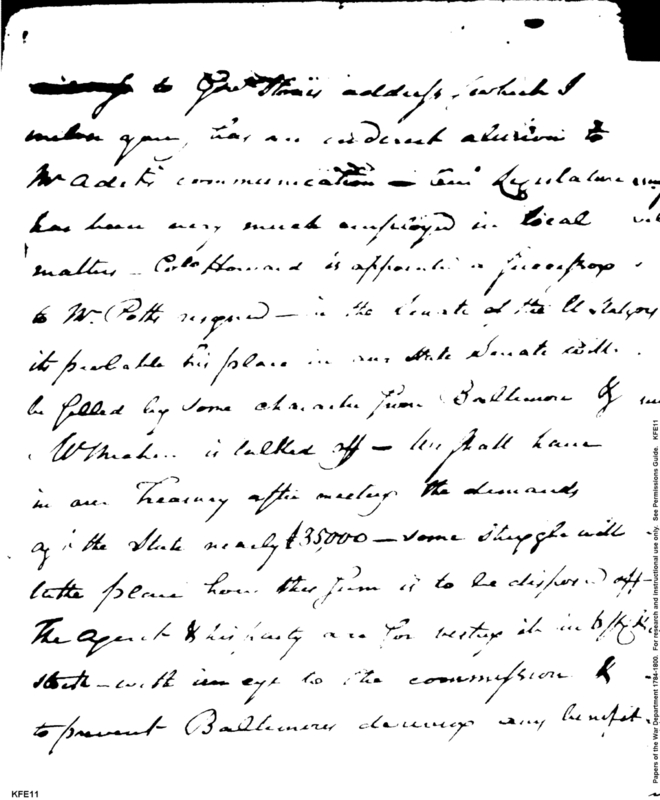 to Govr Stones address, which I
inclose you, has an inderect alusion to
Mr Adets communication — Our Legislature
has been very much employed in local
matters — Colo Howard is appointed a Successor
to Mr Potts resigned — in the Senate of the U States,
its probable his place in our State Senate will
be filled by some character from Baltimore
is talked off — We shall have
in our Treasury after meeting the demands
agt the State nearly £35,000 — some struggle will
take place how this sum is to be disposed off
The Agent & his party are for vesting it in
Stock — with an eye to the commission &
to prevent Baltimores deriving any benefit.
KFE11
Papers of the War Department 1784-1800. For research and instructional use only. See Permissions Guide. KFE11